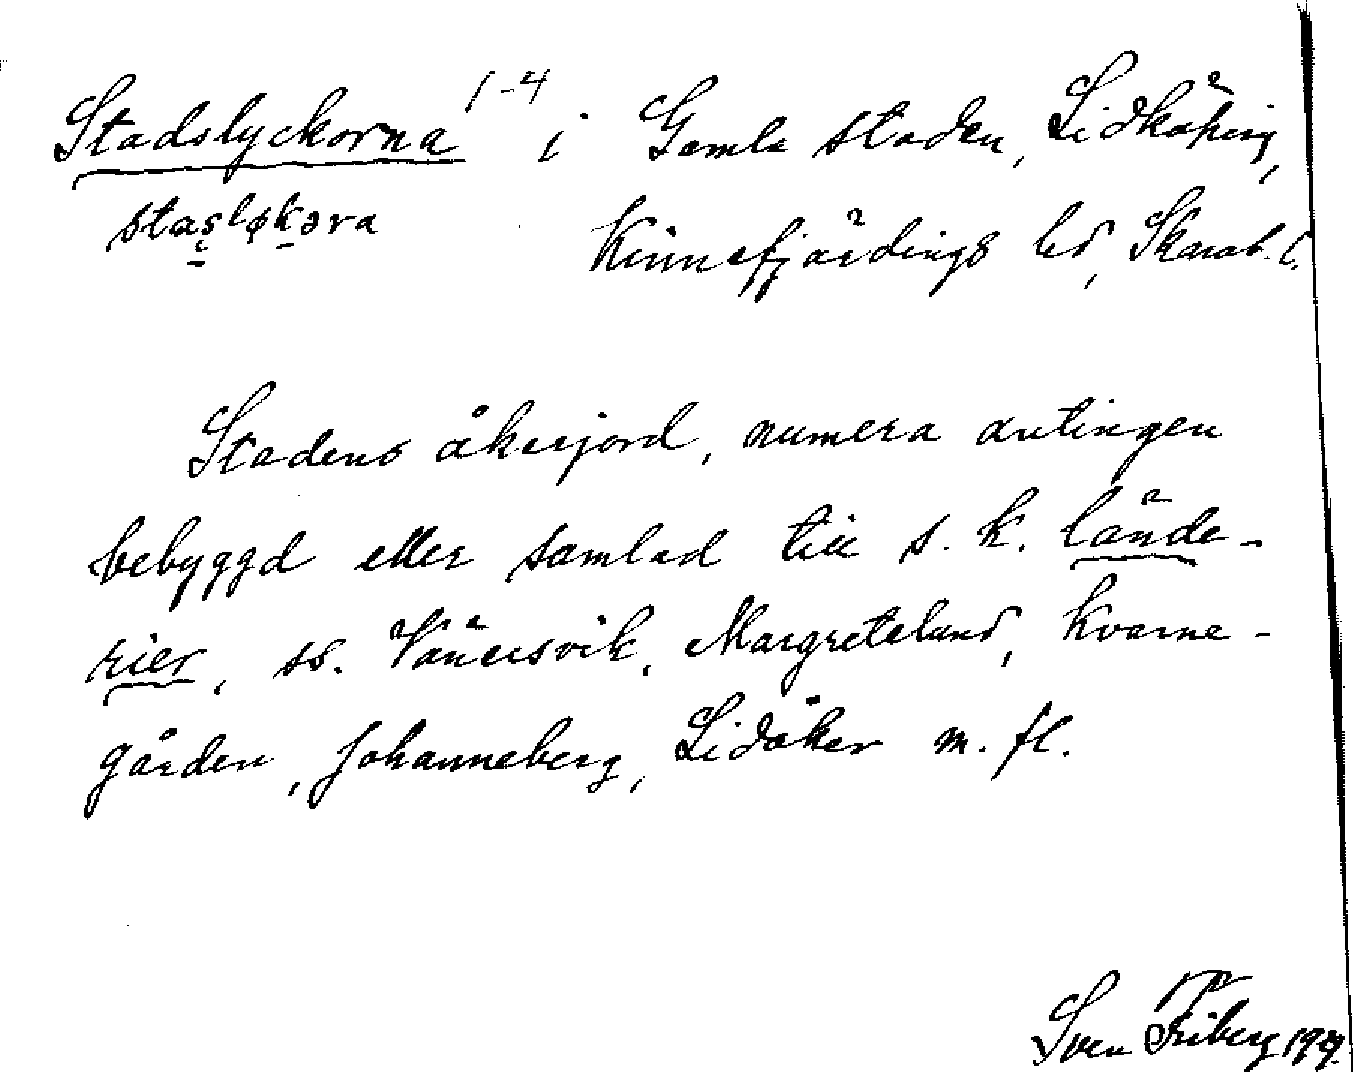 Stadslyckorna 1-4 i Gamla staden, Lidköping,
stasløkəra Kinnefjärdings hd, Skarab. l.
Stadens åkerjord, numera antingen
bebyggd eller samlad till s. k. lände-
rier, ss. Vänersvik, Margreteland, Kvarne-
gården, Johanneberg, Lidåker m. fl.
Sven Friberg